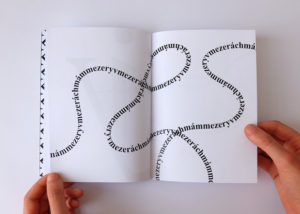 mámmezeryvmezeráchmámmezeryvmezeráchmámmezeryv
mezeráchmámmezeryvmezeráchmámmezeryvmezerách
mámmezeryvmezeráchmám